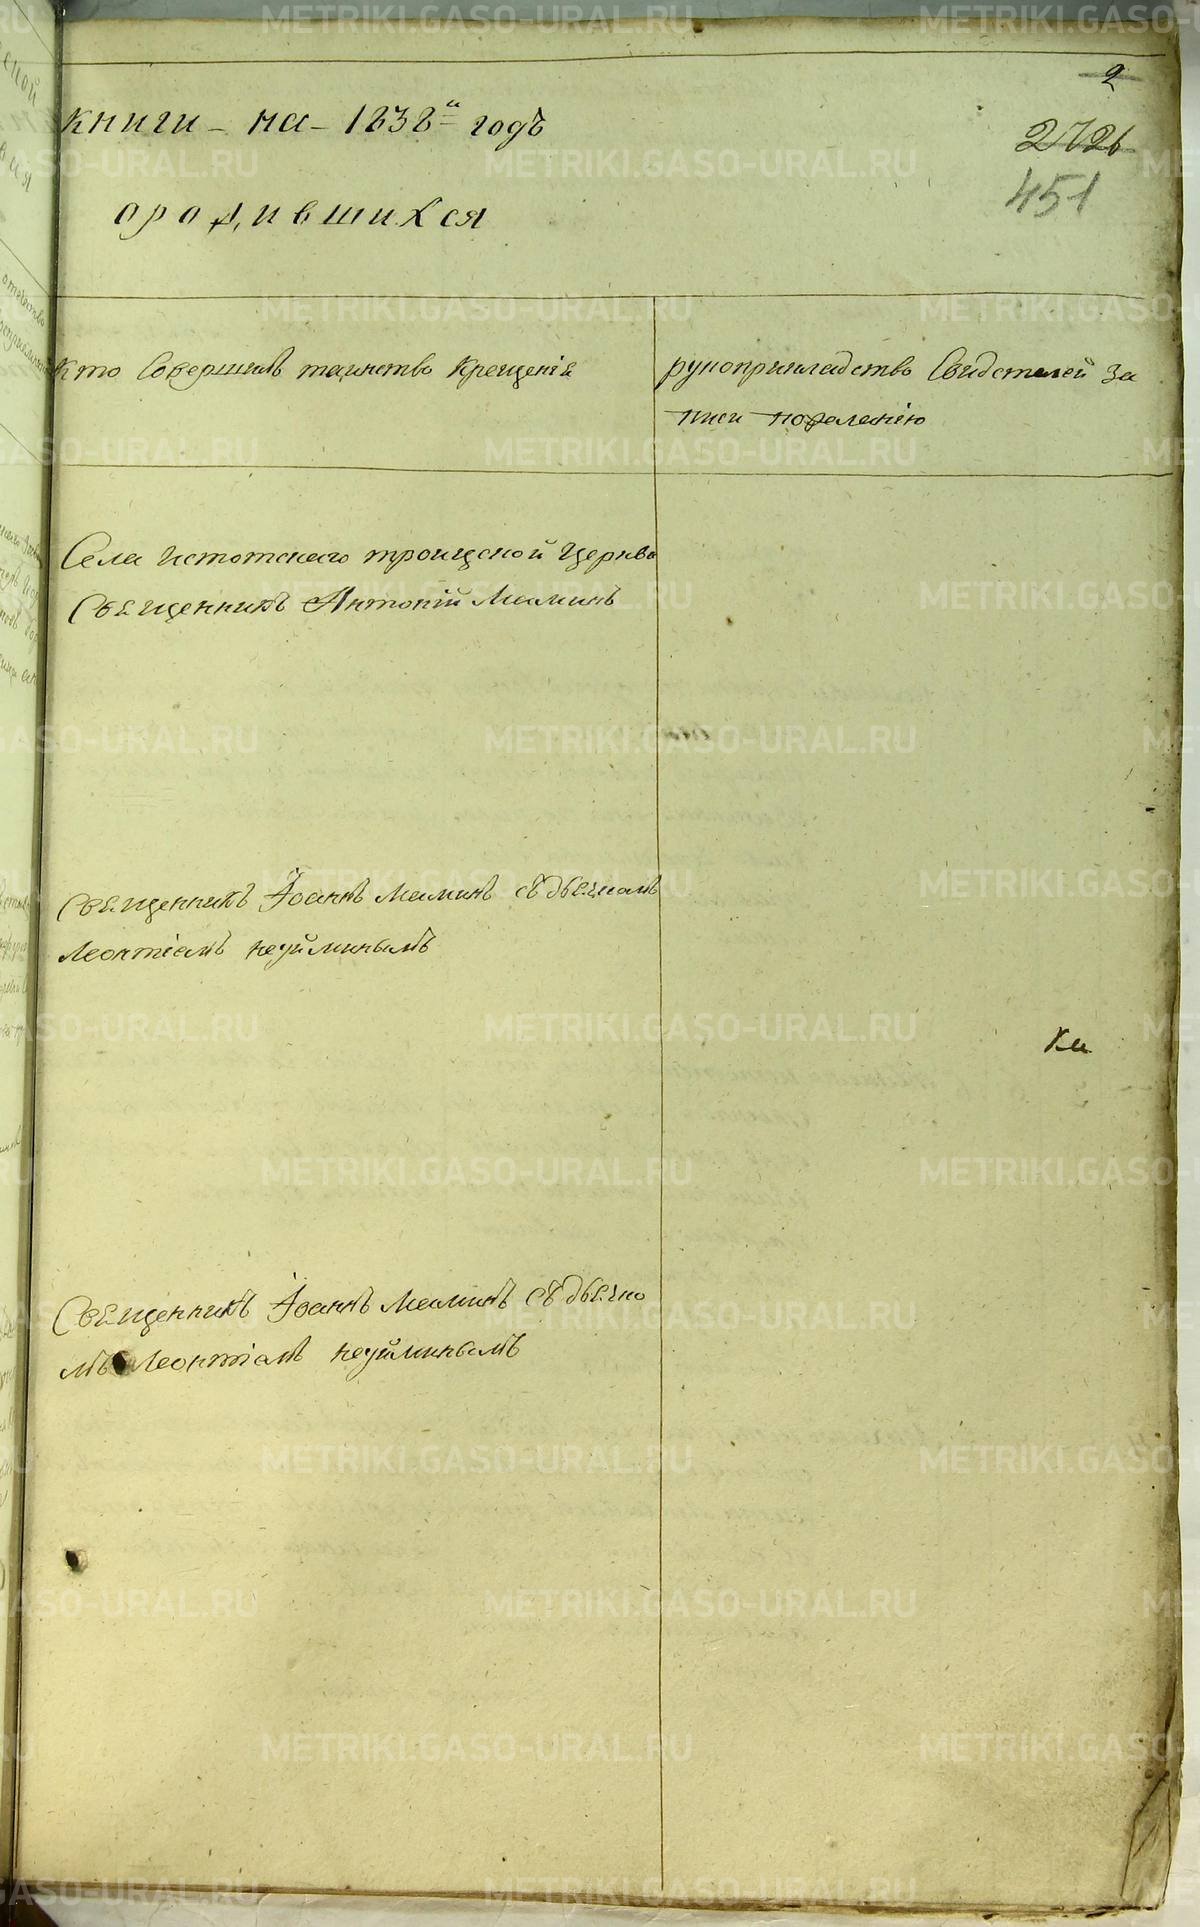 2
книги - на - 1838й годъ
2726
451
ородившихся
кто Совершилъ таинство Крещенія
рукоприкладство Свидетелей за
писи пожеланію
Села Истотскаго троицской Церкви
Священникъ Антоній Маминъ
Священникъ Іоаннъ Маминъ съ дьячкомъ
Леонтіемъ неуйминымъ
Ка
Священникъ Іоаннъ Маминъ съ дьячко
мъ Леонтіемъ неуйминымъ